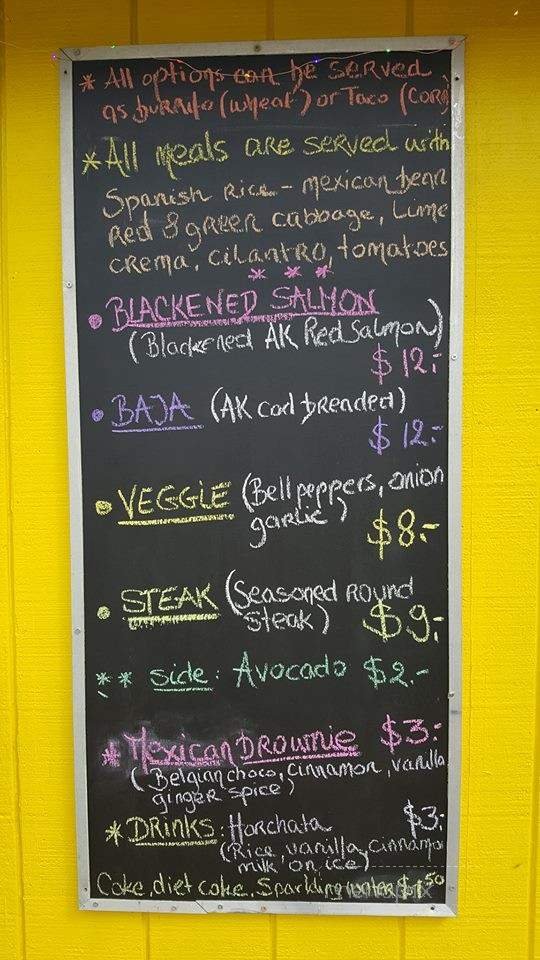 * All options can be served
as burrito (wheat) or Taco (corn)
* All meals are served with
Spanish rice - mexican bean
Red & green cabbage, Lime
crema, cilantro, tomatoes
* * *
• BLACKENED SALMON
(Blackened AK Red Salmon)
$12.-
• BAJA (AK cod breaded)
$12.-
• VEGGIE (Bell peppers, onion
garlic) $8.-
• STEAK (Seasoned Round
Steak) $9.-
** side: Avocado $2.-
* Mexican Brownie $3.-
(Belgian choco, cinnamon, vanilla
ginger spice)
* DRINKS: Horchata $3.-
(Rice, vanilla, cinnamon
milk on ice)
Coke, diet coke, Sparkling water $1.50